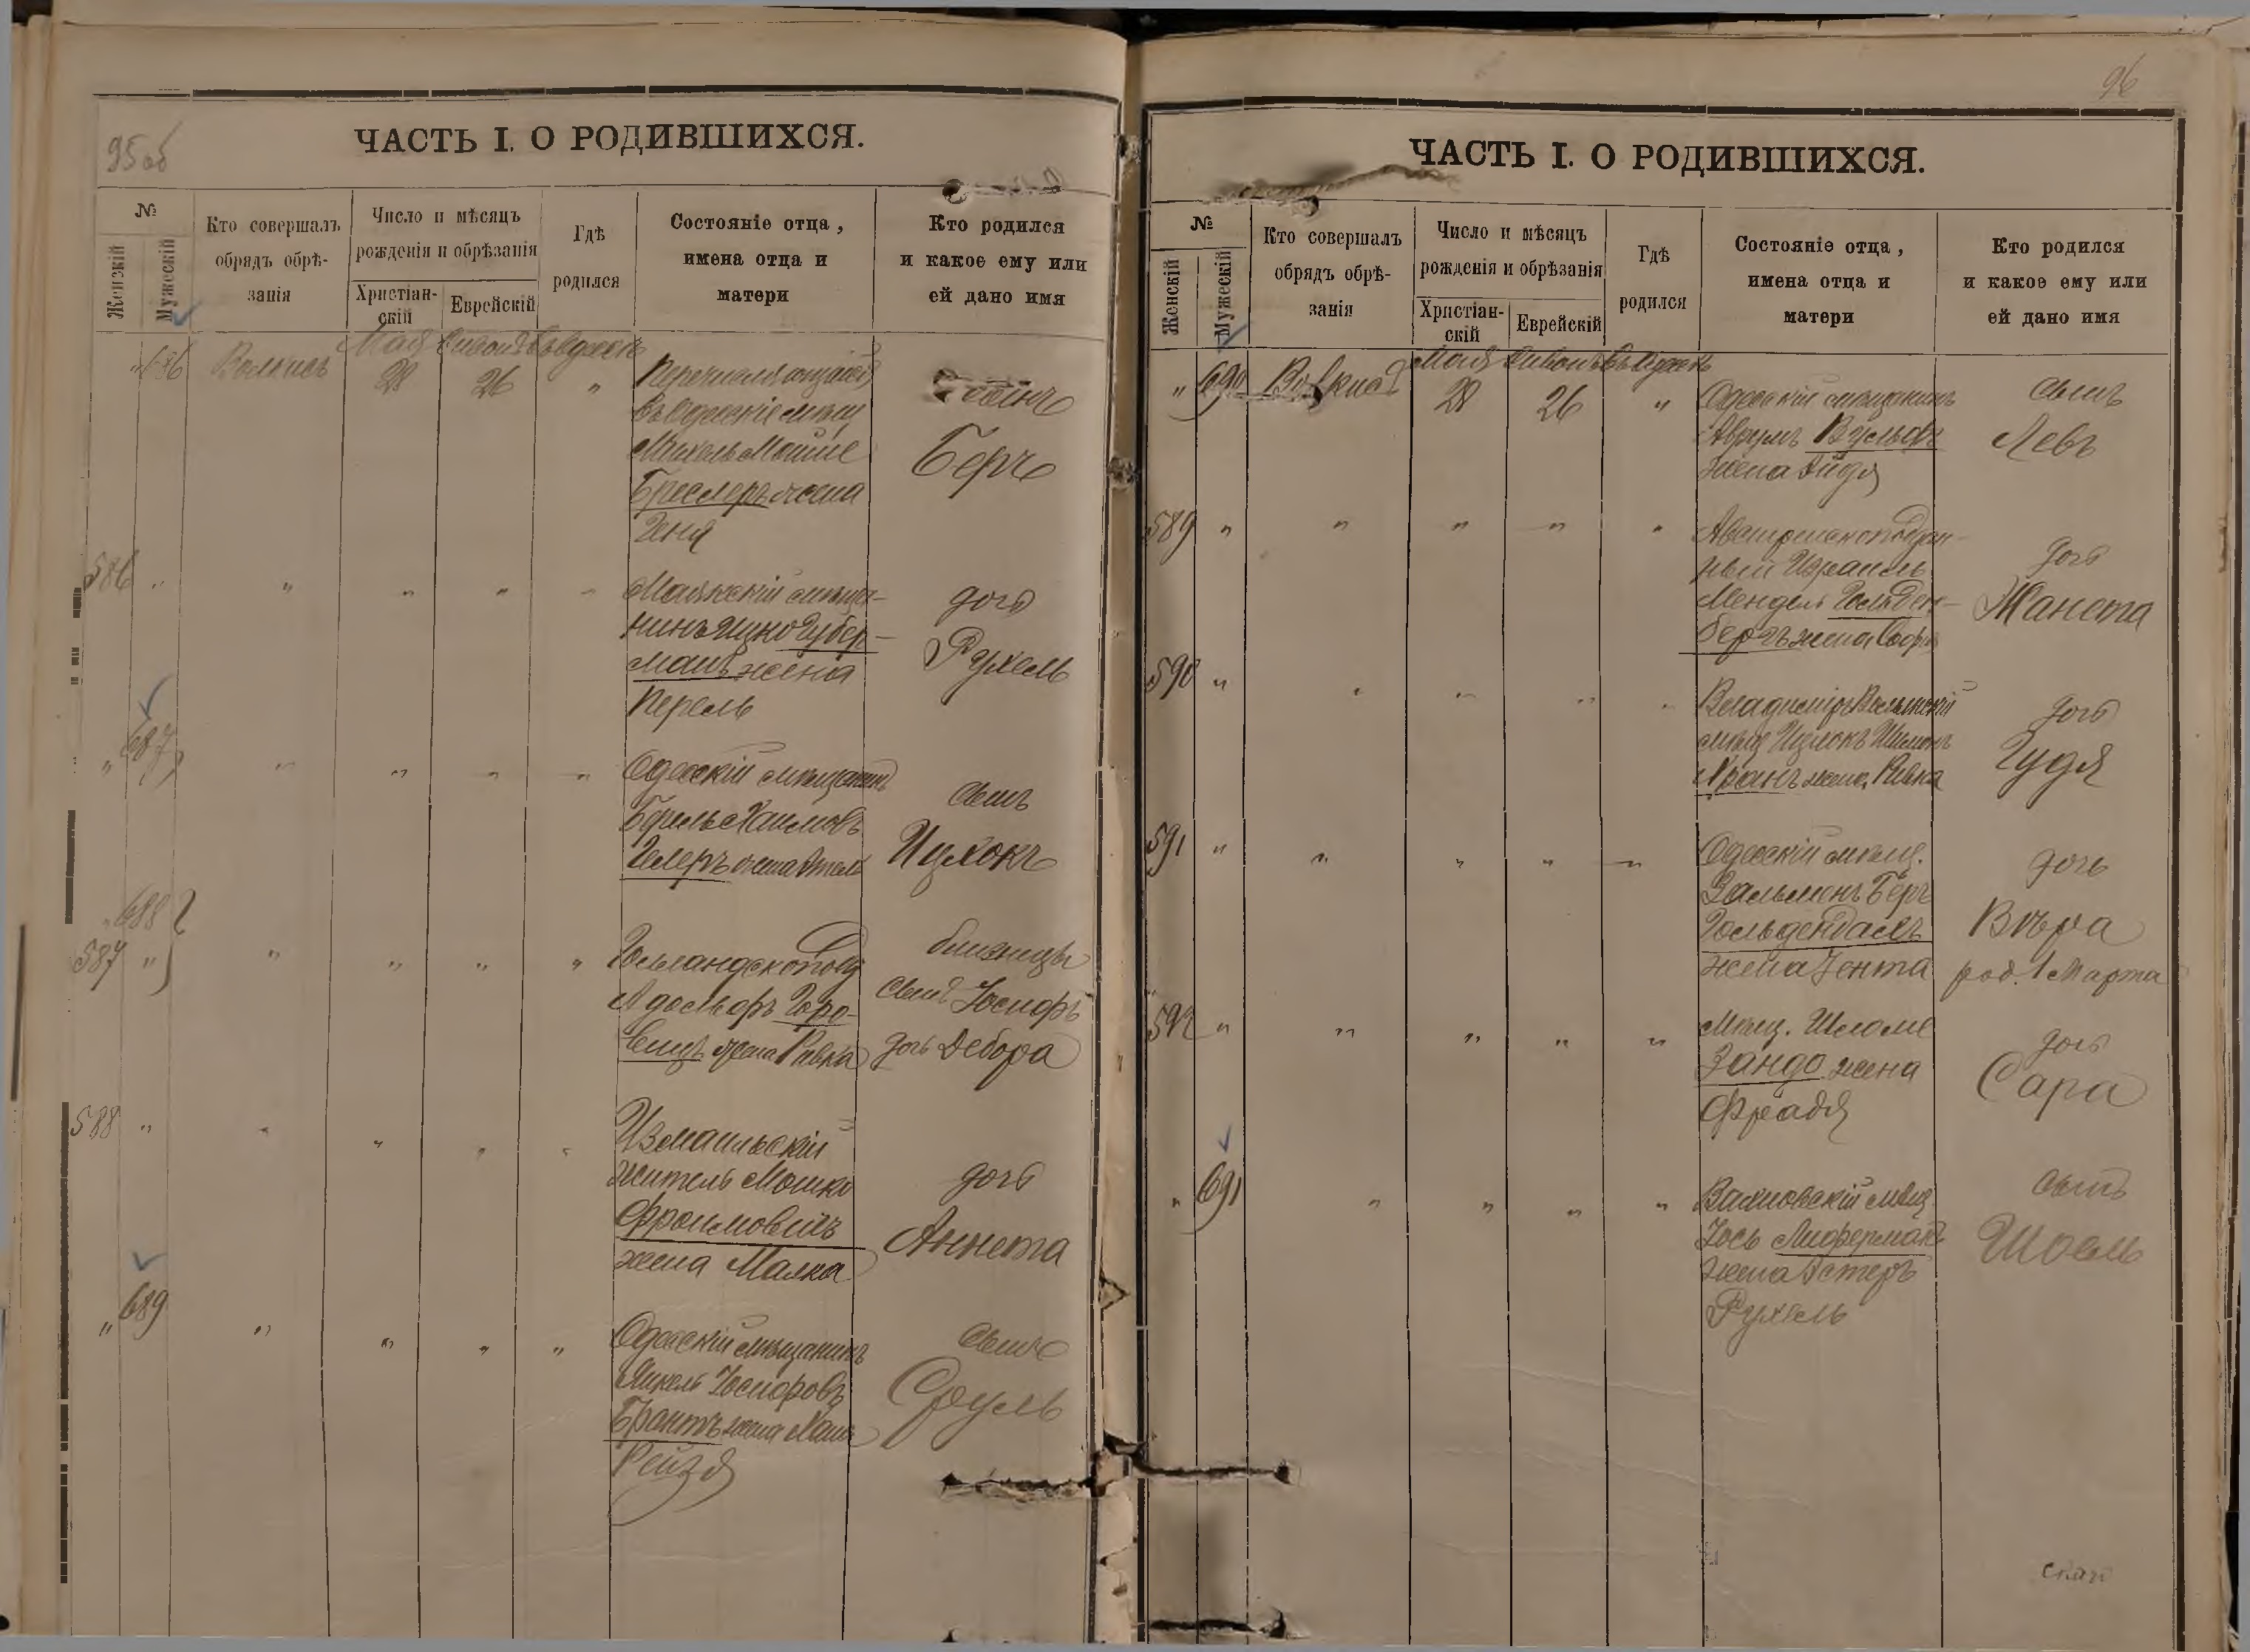 95 об
ЧАСТЬ I. О РОДИВШИХСЯ.
№
Женскій
Мужескій
Кто совершалъ
обрядъ обрѣ-
занія
Число и мѣсяцъ
рожденія и обрѣзанія
Христіан-
скій
Еврейскій
Гдѣ
родился
Состояніе отца,
имена отца и
матери
Кто родился
и какое ему или
ей дано имя
Мая Сивонъ Въ Одессѣ
" 686
28 26 "
въ Одесскіе мѣщ
Михель Мойше
Бреслеръ жена
Геня
сынъ
Беръ
586 " " " " "
Маякскій мѣща-
нинъ Ицко Губер-
манъ жена
Перель
дочь
Рухель
" 687 " " " "
Одесскій мѣщанинъ
Хаимовъ
Гелеръ жена Этель
сынъ
Ицхокъ
" 688
587 " " " " "
Голландскоподд
Адольфъ Горо-
вицъ жена Ривка
близнецы
сынъ Іосифъ
дочь Дебора
588 " " " " "
Измаильскій
житель Мошко
Фроимовичъ
жена Малка
дочь
Аннета
" 689 " " " "
Одесскій мѣщанинъ
Янкель Іосифовъ
Брантъ жена Хана
Рейзя
сынъ
Сруль
96
ЧАСТЬ I. О РОДИВШИХСЯ.
№
Женскій
Мужескій
Кто совершалъ
обрядъ обрѣ-
занія
Число и мѣсяцъ
рожденія и обрѣзанія
Христіан-
скій
Еврейскій
Гдѣ
родился
Состояніе отца,
имена отца и
матери
Кто родился
и какое ему или
ей дано имя
Мая Сивонъ Въ Одессѣ
" 690
28 26 "
Одесскій мѣщанинъ
Аврумъ Вульфъ
жена Эйдя
сынъ
Левъ
589 " " " " "
Австрійскоподдан-
ный Израиль
Мендель Гольден-
бергъ жена Софія
дочь
Жанета
590 " " " " "
Владиміръ Волынскій
мѣщ Ицхокъ Шимонъ
жена Ривка
дочь
Гудя
591 " " " " "
Одесскій мѣщ.
Зальменъ Беръ
Гольденталъ
жена Іента
дочь
Вѣра
род. 1 Марта
592 " " " " "
Мѣщ. Шломе
Зандо жена
Фрадя
дочь
Сара
" 691 " " " "
Вахновскій мѣщ.
Іось Лиферманъ
жена Эстеръ
Рухель
сынъ
Шоель